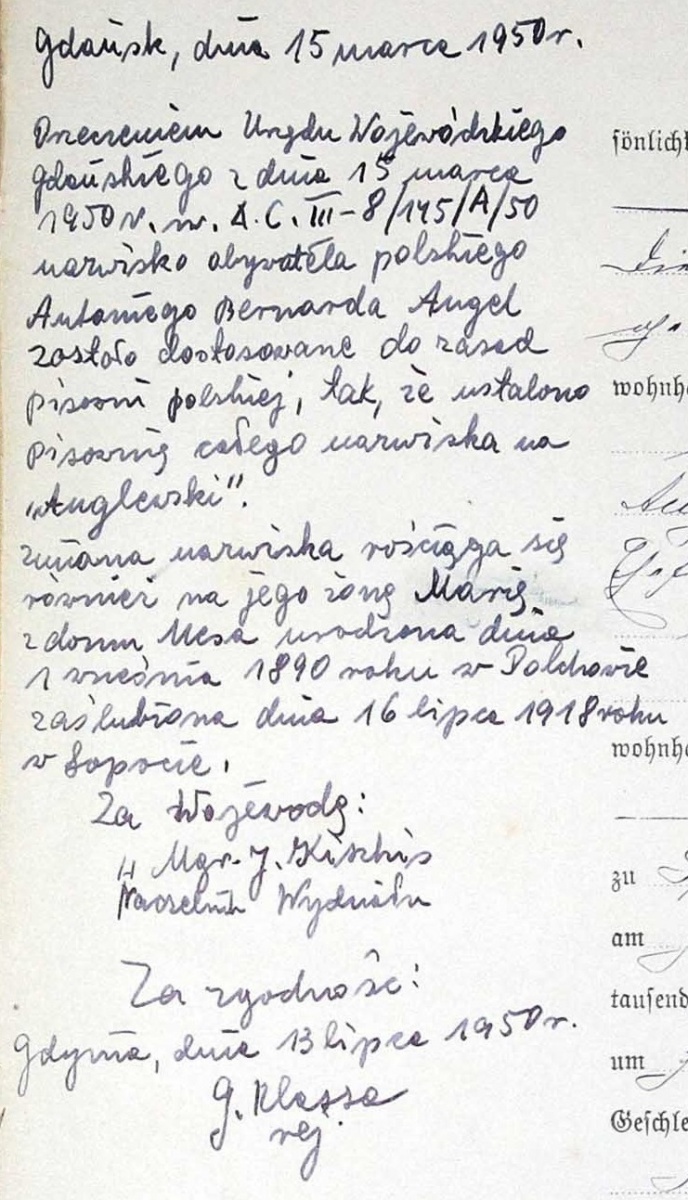 Gdańsk, dnia 15 marca 1950 r.
Orzeczeniem Urzędu Wojewódzkiego
Gdańskiego z dnia 15 marca
1950 r. nr. A.C. III-8/145/A/50
nazwisko obywatela polskiego
Antoniego Bernarda Angel
zostało dostosowane do zasad
pisowni polskiej, tak, że ustalono
pisownię całego nazwiska na
„Anglewski”.
Zmiana nazwiska rościąga się
również na jego żonę Marię
z domu Mesa urodzona dnia
1 września 1890 roku w Połchowie
zaślubiona dnia 16 lipca 1918 roku
w Sopocie.
Za Wojewodę:
„ Mgr. J.
Naczelnik Wydziału
Za zgodność:
Gdynia, dnia 13 lipca 1950 r.
G. Klassa
rej.
sönlich
wohnh
wohnh
zu
am
tausend
um
Geschle